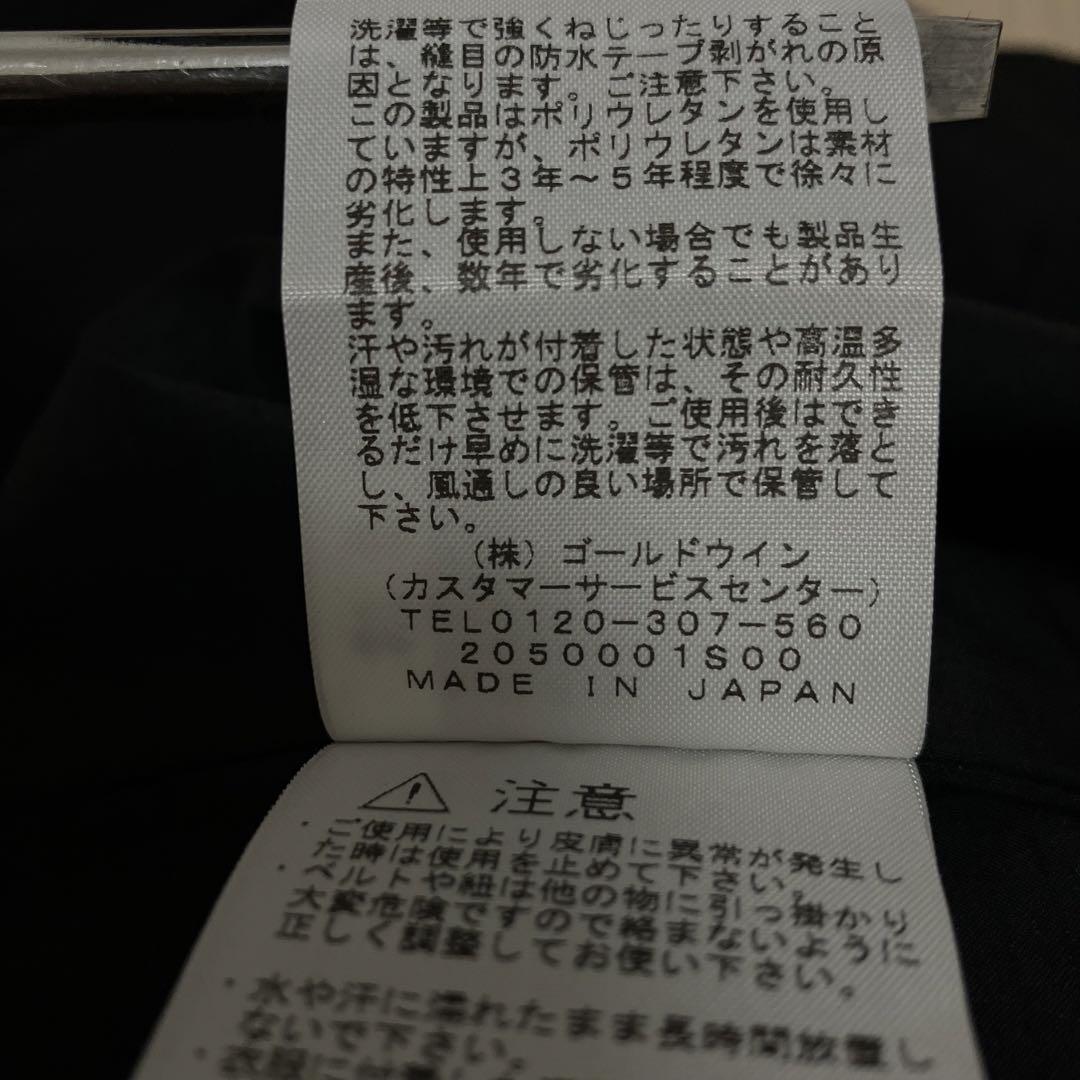 洗濯等で強くねじったりすること
は、縫目の防水テープ剥がれの原
因となります。ご注意下さい。
この製品はポリウレタンを使用し
ていますが、ポリウレタンは素材
の特性上３年～５年程度で徐々に
劣化します。
また、使用しない場合でも製品生
産後、数年で劣化することがあり
ます。
汗や汚れが付着した状態や高温多
湿な環境での保管は、その耐久性
を低下させます。ご使用後はでき
るだけ早めに洗濯等で汚れを落と
し、風通しの良い場所で保管して
下さい。
（株）ゴールドウイン
（カスタマーサービスセンター）
ＴＥＬ０１２０－３０７－５６０
２０５０００１Ｓ００
ＭＡＤＥ　ＩＮ　ＪＡＰＡＮ
注意
・ご使用により皮膚に異常が発生し
た時は使用を止めて下さい。
・ベルトや紐は他の物に引っ掛かり
大変危険ですので絡まないように
正しく調整してお使い下さい。
・水や汗に濡れたまま長時間放置し
ないで下さい。
・衣服に付着し